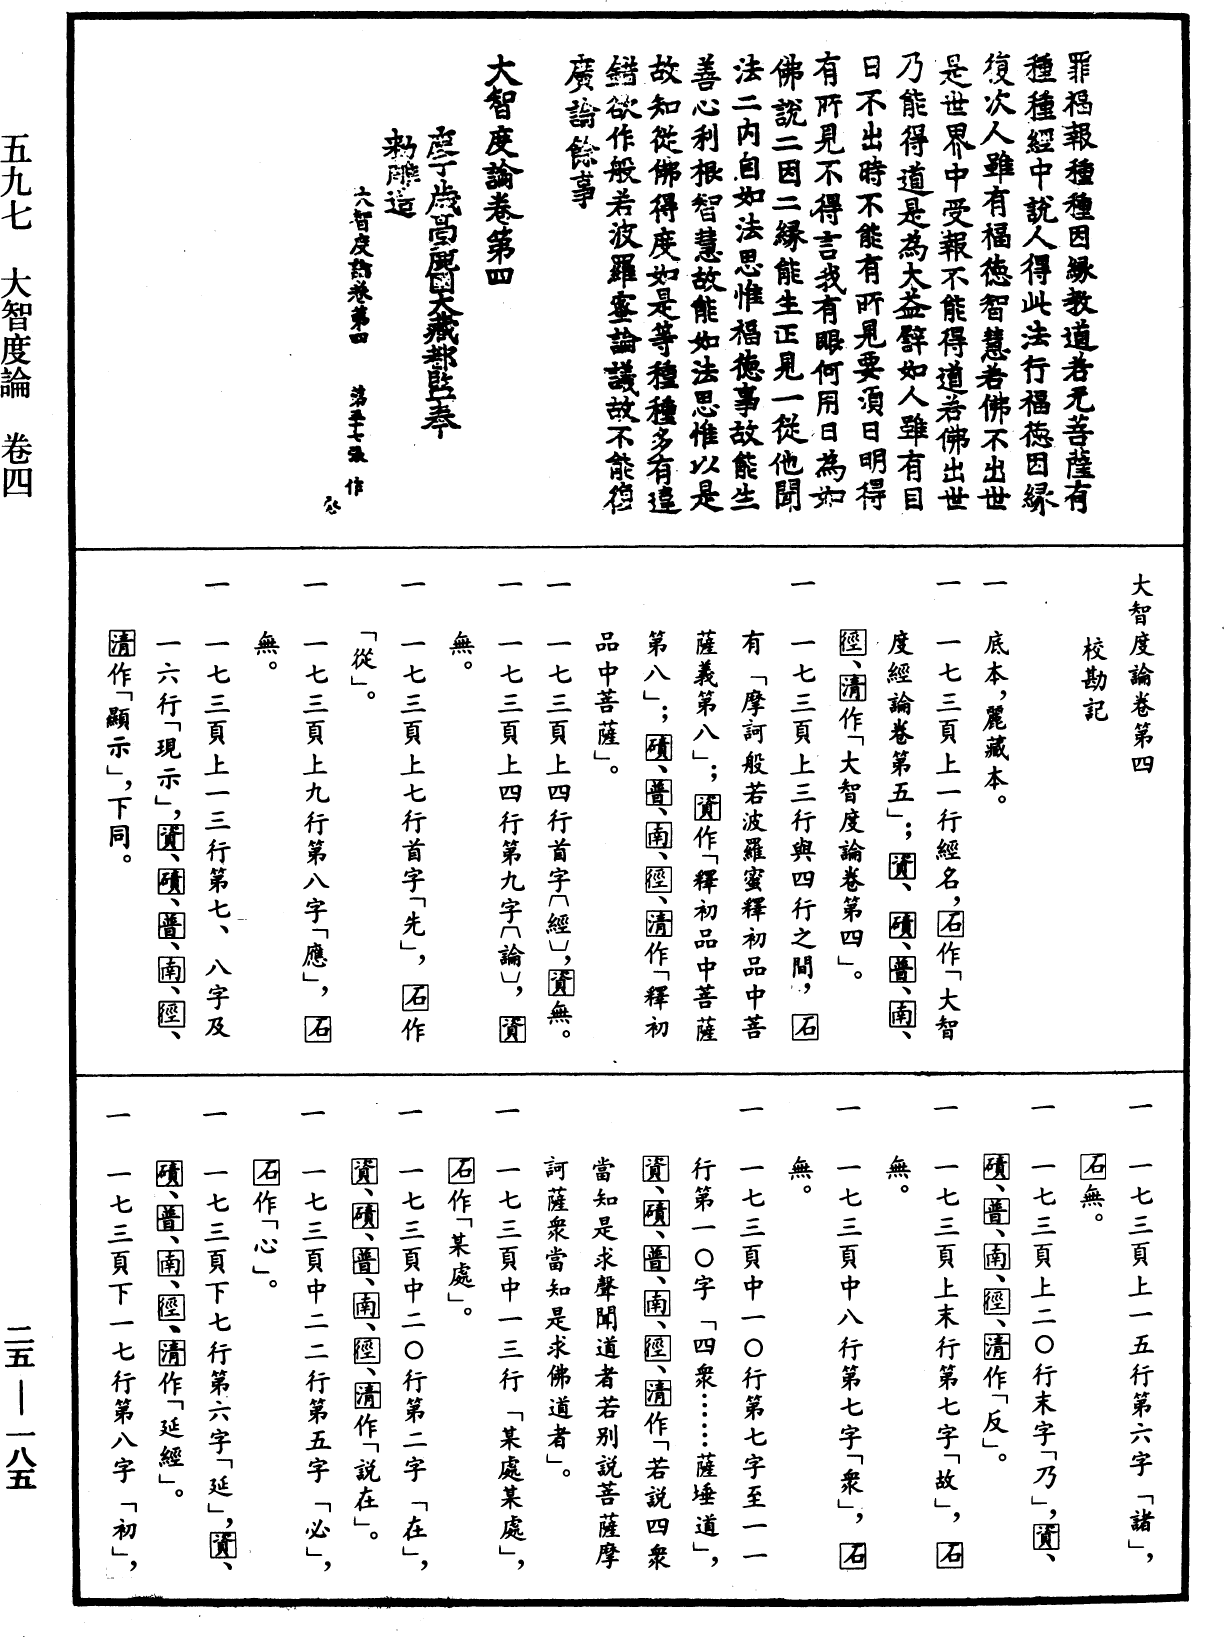 罪福報種種因縁教道若无菩薩有
種種經中說人得此法行福徳因縁
復次人雖有福徳智慧若佛不出世
是世界中受報不能得道若佛出世
乃能得道是為大益譬如人雖有目
日不出時不能有所見要須日明得
有所見不得言我有眼何用日為如
佛說二因二縁能生正見一從他聞
法二內自如法思惟福徳事故能生
善心利根智慧故能如法思惟以是
故知從佛得度如是等種種多有違
錯欲作般若波羅蜜論議故不能復
廣論餘事
大智度論卷第四
歲高麗國大藏都監奉
勅雕造
大智度論卷第四 第三十七張 作
大智度論卷第四
校勘記
一 底本,麗藏本。
一 一七三頁上一行經名,石作「大智
度經論卷第五」;資、磧、普、南、
徑、清作「大智度論卷第四」。
一 一七三頁上三行與四行之間,石
有「摩訶般若波羅蜜釋初品中菩
薩義第八」;資作「釋初品中菩薩
第八」;磧、普、南、徑、清作「釋初
品中菩薩」。
一 一七三頁上四行首字〔經〕,資無。
一 一七三頁上四行第九字〔論〕,資
無。
一 一七三頁上七行首字「先」,石作
「從」。
一 一七三頁上九行第八字「應」,石
無。
一 一七三頁上一三行第七、八字及
一六行「現示」,資、磧、普、南、徑、
清作「顯示」,下同。
一 一七三頁上一五行第六字「諸」,
石無。
一 一七三頁上二〇行末字「乃」,資、
磧、普、南、徑、清作「反」。
一 一七三頁上末行第七字「故」,石
無。
一 一七三頁中八行第七字「衆」,石
無。
一 一七三頁中一〇行第七字至一一
行第一〇字「四衆……薩埵道」,
資、磧、普、南、徑、清作「若說四衆
當知是求聲聞道者若別説菩薩摩
訶薩衆當知是求佛道者」。
一 一七三頁中一三行「某處某處」,
石作「某處」。
一 一七三頁中二〇行第二字「在」,
資、磧、普、南、徑、清作「説在」。
一 一七三頁中二二行第五字「必」,
石作「心」。
一 一七三頁下七行第六字「延」,資、
磧、普、南、徑、清作「延經」。
一 一七三頁下一七行第八字「初」,
五九七 大智度論 卷四
二五—一八五